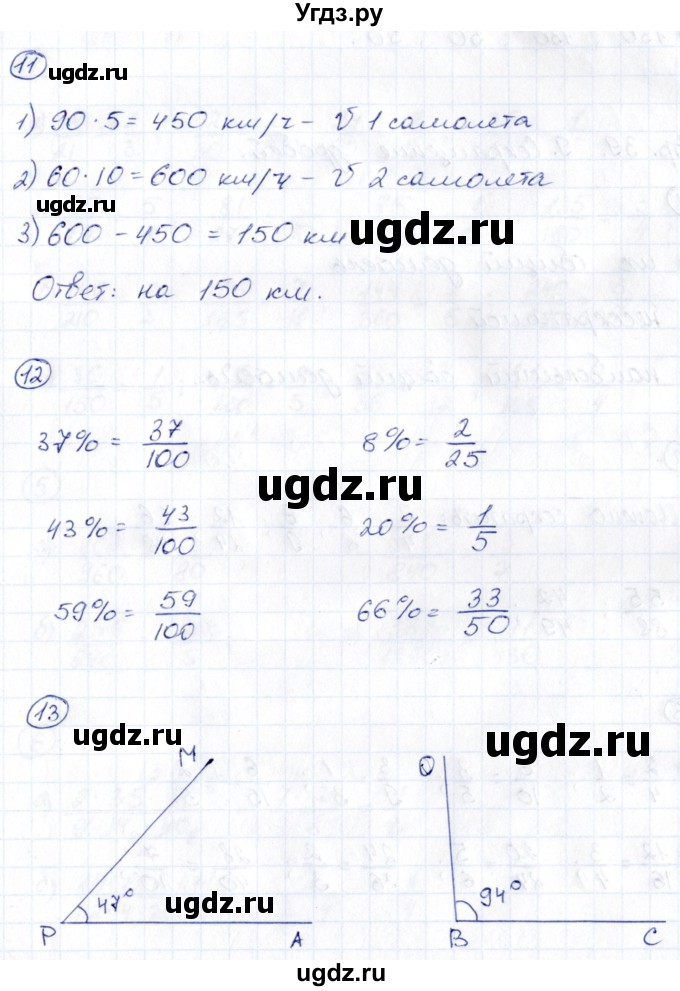 Угдз.ру
11
ugdz.ru
1) 90 · 5 = 450 км/ч - v 1 самолета
2) 60 · 10 = 600 км/ч - v 2 самолета
ugdz.ru
3) 600 - 450 = 150 км
ugdz.ru
Ответ: на 150 км.
12
37% = 37/100 8% = 2/25
ugdz.ru
43% = 43/100 20% = 1/5
59% = 59/100 66% = 33/50
13
ugdz.ru ugdz.ru
M O
47° ugdz.ru 94°
P A B C
ugdz.ru